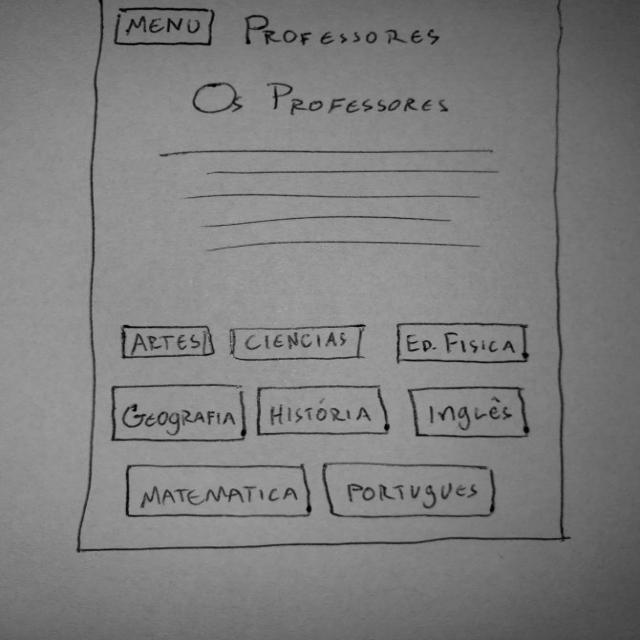 MENU PROFESSORES
Os PROFESSORES
ARTES CIENCIAS ED. FISICA
GEOGRAFIA HISTÓRIA INGLÊS
MATEMATICA PORTUGUES